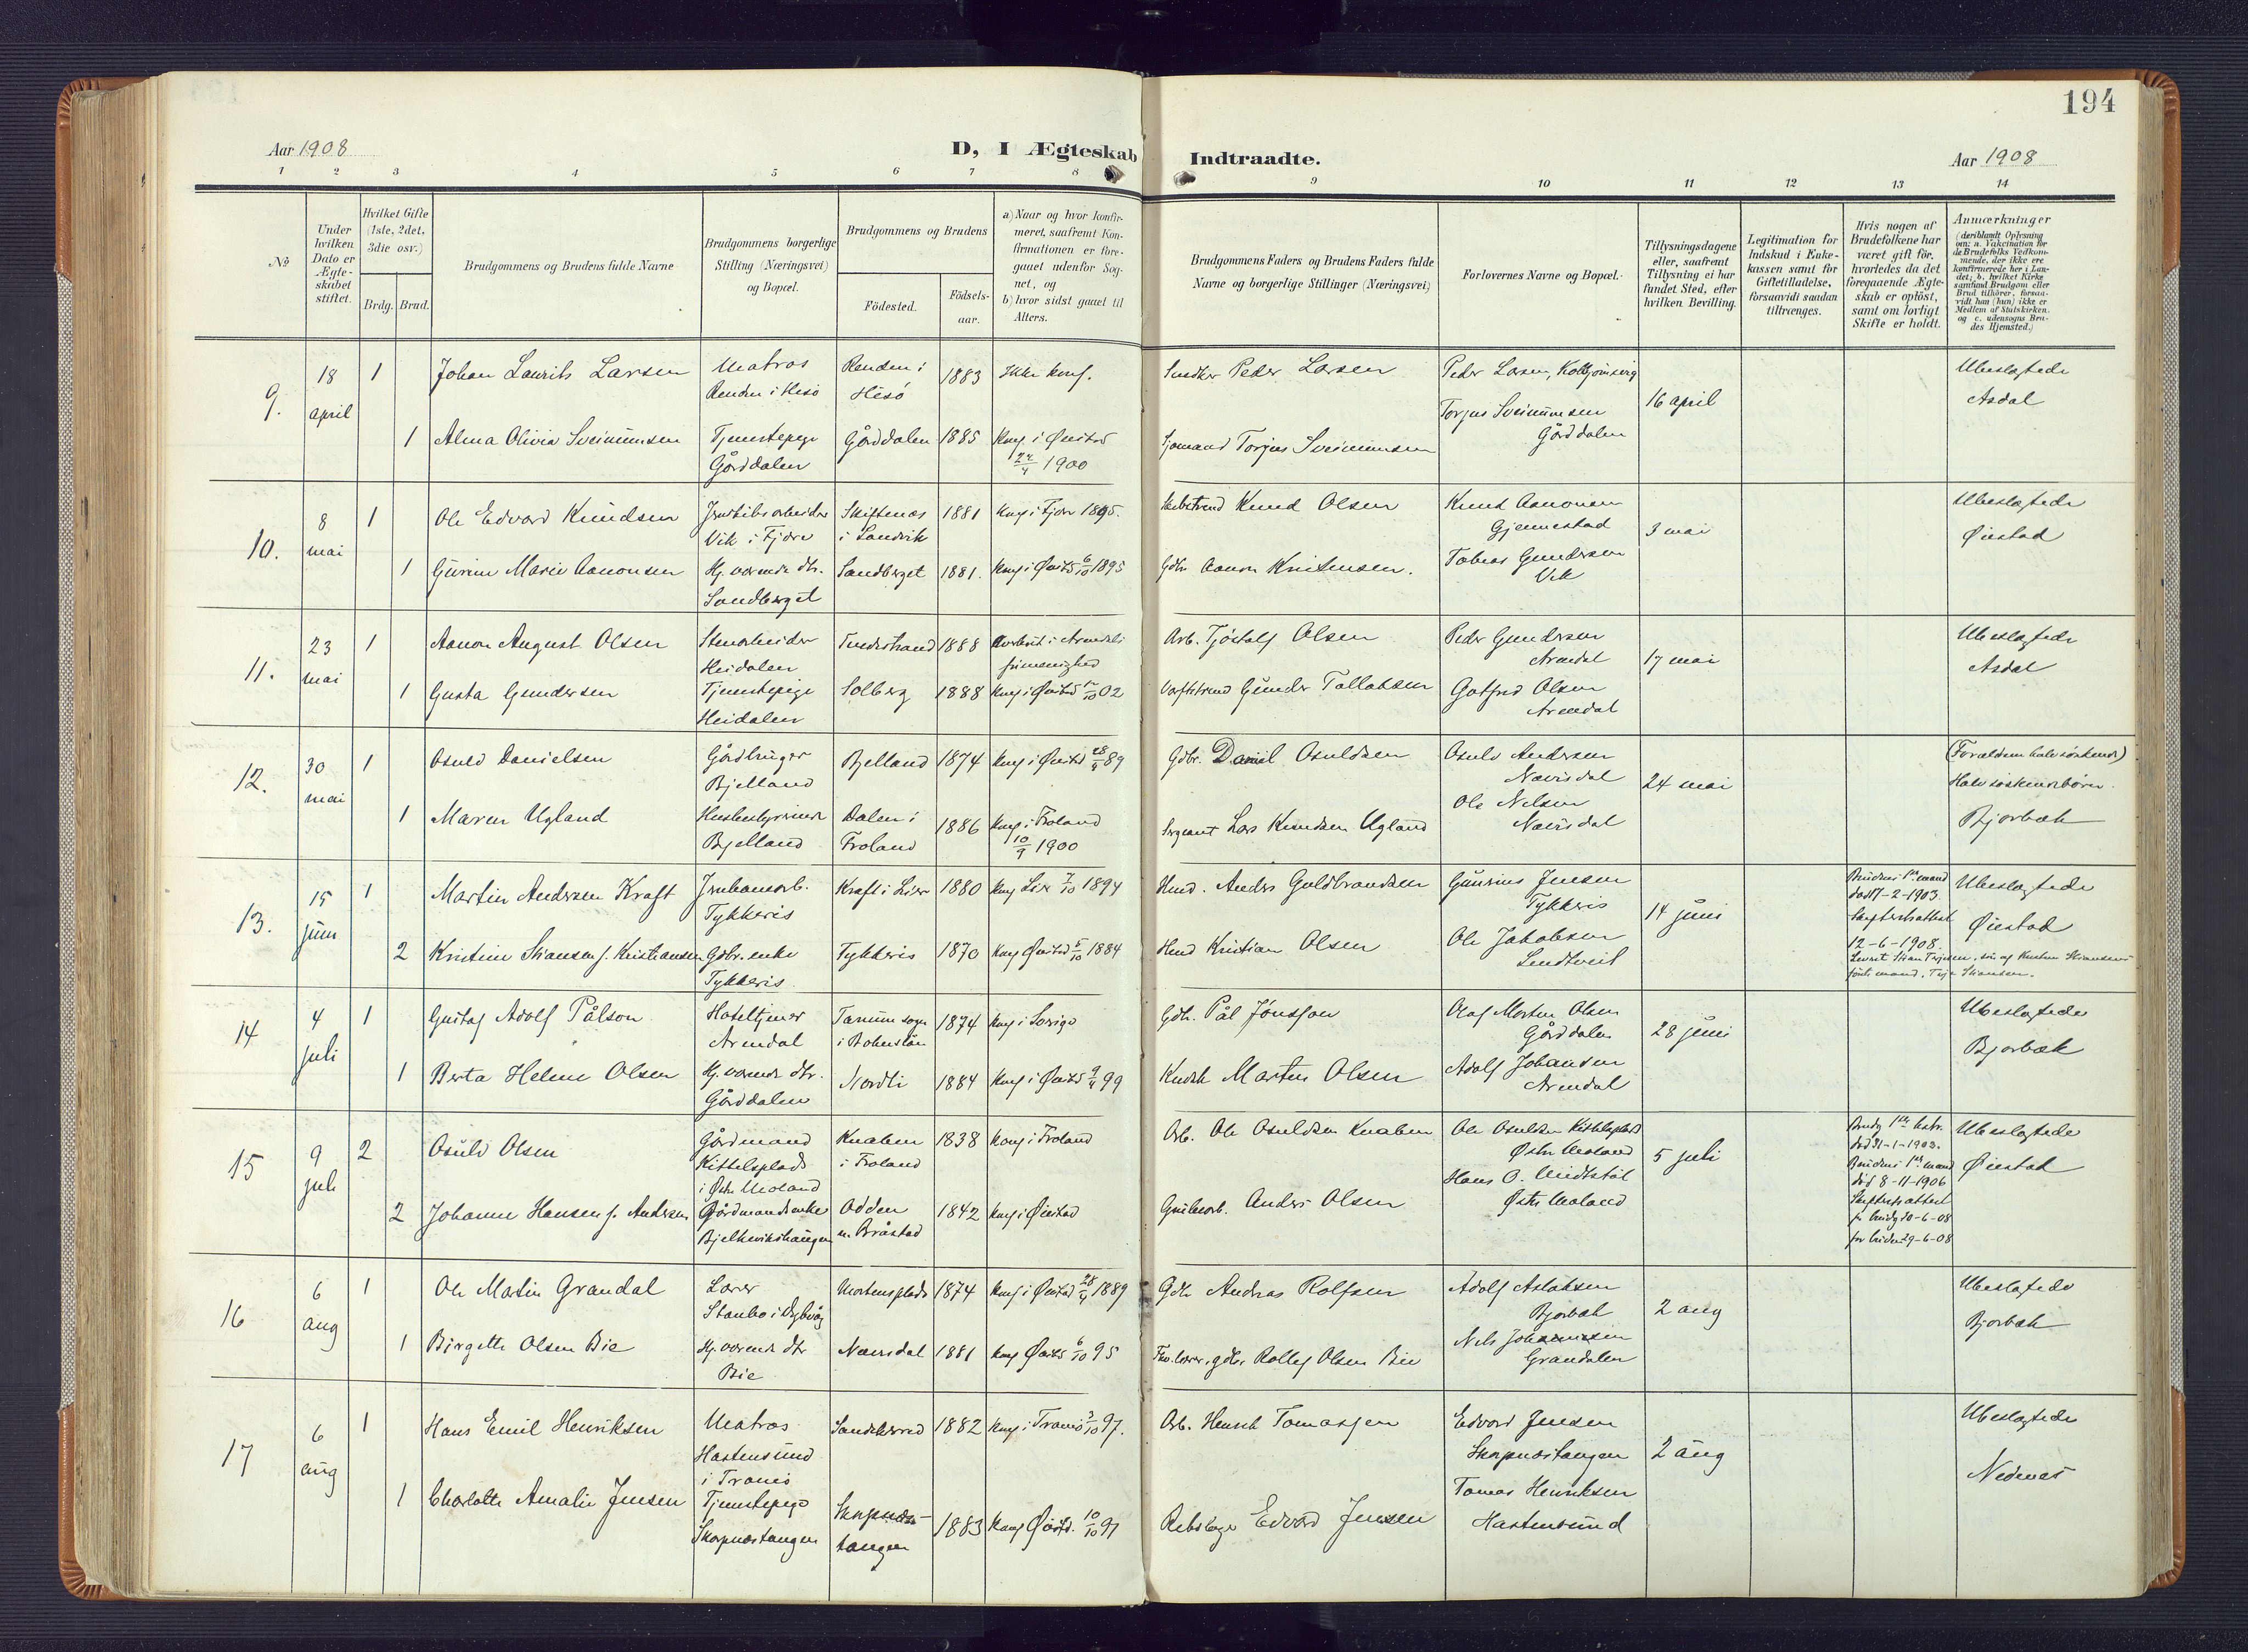 194
Aar 1908
D, I Ægteskab Indtraadte.
Aar 1908
1 2 3 4 5 6 7 8 9 10 11 12 13 14
No
Under hvilken Dato er Ægteskabet stiftet.
Hvilket Gifte (1ste, 2det, 3die osv.)
Brdg. Brud.
Brudgommens og Brudens fulde Navne
Brudgommens borgerlige Stilling (Næringsvei) og Bopæl.
Brudgommens og Brudens
Födested.
Födsels-aar.
a) Naar og hvor konfir-
meret, saafremt Kon-
firmationen er fore-
gaaet udenfor Sog-
net, og
b) hvor sidst gaaet til
Alters.
Brudgommens Faders og Brudens Faders fulde
Navne og borgerlige Stillinger (Næringsvei)
Forlovernes Navne og Bopæl.
Tillysningsdagene
eller, saafremt
Tillysning ei har
fundet Sted, efter
hvilken Bevilling.
Legitimation for
Indskud i Enke-
kassen samt for
Giftetilladelse,
forsaavidt saadan
tiltrænges.
Hvis nogen af
Brudefolkene har
været gift før,
hvorledes da det
foregaaende Ægte-
skab er opløst,
samt om lovligt
Skifte er holdt.
Anmærkninger
(deriblandt Oplysning
om: a. Vakcination for
de Brudefolks Vedkom-
mende, der ikke ere
konfirmerede her i Lan-
det; b. hvilket Kirke
samfund Brudgom eller
Brud tilhører, forsaa-
vidt han (hun) ikke er
Medlem af Statskirken,
og c. udensogns Bru-
des Hjemsted.)
9. 18 april 1 Johan Laurits Larsen Matros Renden i Hisö Renden i Hisö 1883 Ikke konf. Peder Larsen Peder Larsen, 16 april Ubeslægtede Asdal
1 Alma Olivia Sveinumsen Tjenestepige Gårddalen Gårddalen 1885 Konf. i Øiestad 1900 Sjømand Torjus Sveinumsen Torjus Sveinumsen Gårddalen
10. 8 mai 1 Ole Edvard Knudsen Vik i Fjære Skiftenes i Landvik 1881 Konf. i Fjære 1895. Knud Olsen Knud Aanonsen Gjennestad 3 mai Ubeslægtede Øiestad
1 Gurine Marie Aanonsen Hj. værende dtr. Sandberget Sandberget 1881. Konf. i Øiestad 6/10 1895 Gdbr. Aanon Kristensen. Tobias Gundersen Vik
11. 23 mai 1 Aanon August Olsen Stenarbeider Heidalen 1888 Arendals frimenighed Arb. Tjøstolf Olsen Peder Gundersen Arendal 17 mai Ubeslægtede Asdal
1 Gusta Gundersen Tjenestepige Heidalen Solberg 1888 Konf. i Øiestad 02 Gunder Tallaksen Gotfred Olsen Arendal
12. 30 mai 1 Osuld Danielsen Gårdbruger Bjelland Bjelland 1874 Konf. i Øiestad 28/4 89 Gdbr. Daniel Osuldsen Osuld Andersen Nævisdal 24 mai (Forældrene halvsøskende) Halvsøskendebørn. Bjorbæk
1 Maren Ugland Husbestyrerinde Bjelland Dalen i Froland 1886 Konf. i Froland 10/9 1900 Sergeant Lars Knudsen Ugland Ole Nilsen Nævisdal
13. 15 juni 1 Martin Andersen Kraft Jernbanearb. Tykkeris Kraft i Lier 1880 Konf. Lier 7/10 1894 Husmd. Anders Guldbrandsen Gunerius Jensen Tykkeris 14 juni Brudens 1ste mand død 17-2-1903. Skifteretsattest 12-6-1908. Ubeslægtede Øiestad
2 Kristine Stiansen f. Kristiansen Gdbr. enke Tykkeris. Tykkeris 1870 Konf. Øiestad 5/10 1884 Husmd Kristian Olsen Ole Jakobsen Lindtveit
14 4 juli 1 Gustaf Adolf Pålson Hoteltjener Arendal Tanum sogn i Bohuslän 1874 Konf. i Sverige Gdb. Pål Jonsson Olaf Morten Olsen Gårddalen 28 juni Ubeslægtede Bjorbæk
1 Berta Helene Olsen Hj. værende dtr. Gårddalen Nordli 1884 Konf. i Øiestad 9/4 99 Kudsk Martin Olsen Adolf Johansen Arendal
15 9 juli 2 Osuld Olsen Gårdmand Kittelsplads i Østre Moland Knaben i Froland 1838 Konf. i Froland Arb. Ole Osuldsen Knaben Ole Osuldsen Kittelsplads Østre Moland 5 juli Brudg. 1ste hstr. død 31-1-1903. Brudens 1ste mand død 8-11-1906 Skifteretsattest for brudg 30-6-08 for bruden 29-6-08 Ubeslægtede Øiestad
2 Johanne Hansen f. Andersen Gårdmandsenke Bjelkevikshaugen Odden u. Bråstad 1842 Konf. i Øiestad Grubearb. Anders Olsen Hans O. Midtstøl Østre Moland
16 6 aug 1 Ole Martin Grandal Lærer Staubø i Dybvåg Mortensplads 1874 Konf. i Øiestad 28/4 1889 Gdb. Andreas Rolfsen Adolf Aslaksen Bjorbæk 2 aug Ubeslægtede Bjorbæk
1 Birgitte Olsen Bie Hj. værende dtr Bie Nævisdal 1881 Konf. Øiestad 6/10 95 Rollef Olsen Bie Nils Johannesen Grandalen
17 6 aug 1 Hans Emil Henriksen Matros Hastensund i Tromø 1882 Konf. i Tromø 3/10 97. Arb. Henrik Tomassen Edvard Jensen Skarpnæstangen 2 aug Ubeslægtede Nedenæs
1 Charlotte Amalie Jensen Tjenestepige Skarpnæstangen Skarpnæs-tangen 1883 Konf. Øiestd. 10/10 97 Rebslager Edvard Jensen Tomas Henriksen Hastensund